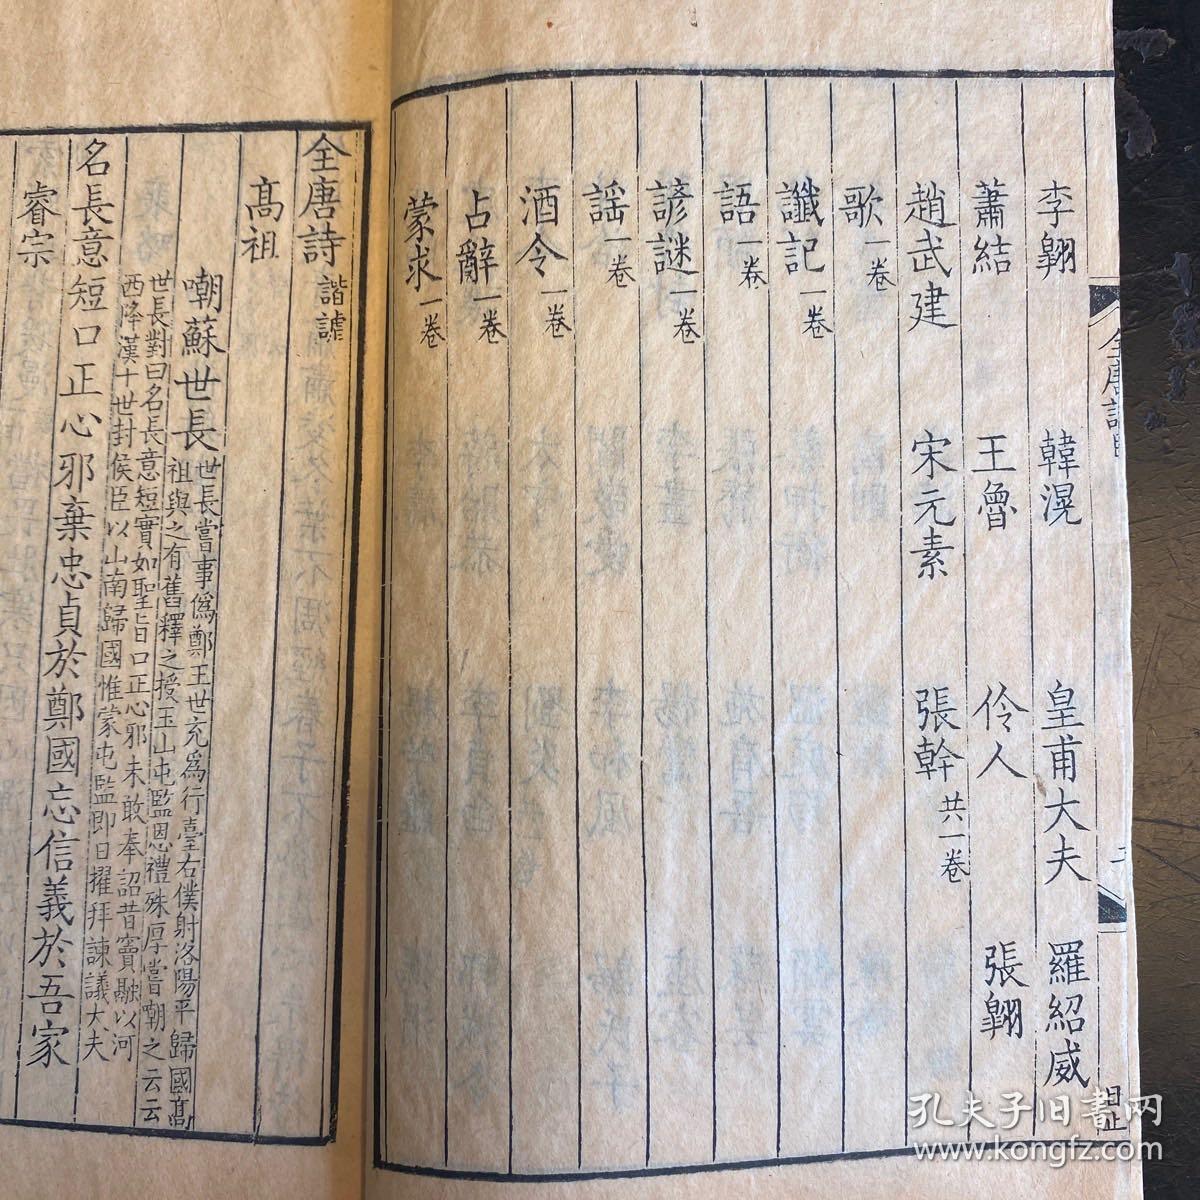 李翱　韓滉　皇甫大夫　羅紹威
蕭結　王魯　伶人　張翱
趙武建　宋元素　張幹共一卷
歌一卷
讖記一卷
語一卷
諺謎一卷
謠一卷
酒令一卷
占辭一卷
蒙求一卷
目止
全唐詩諧謔
高祖
嘲蘇世長
世長嘗事僞鄭王世充爲行臺右僕射洛陽平歸國高
祖與之有舊釋之授玉山屯監恩禮殊厚嘗嘲之云云
世長對曰名長意短實如聖旨口正心邪未敢奉詔昔竇融以河
西降漢十世封侯臣以山南歸國惟蒙屯監即日擢拜諫議大夫
名長意短口正心邪棄忠貞於鄭國忘信義於吾家
睿宗
孔夫子旧书网
www.kongfz.com